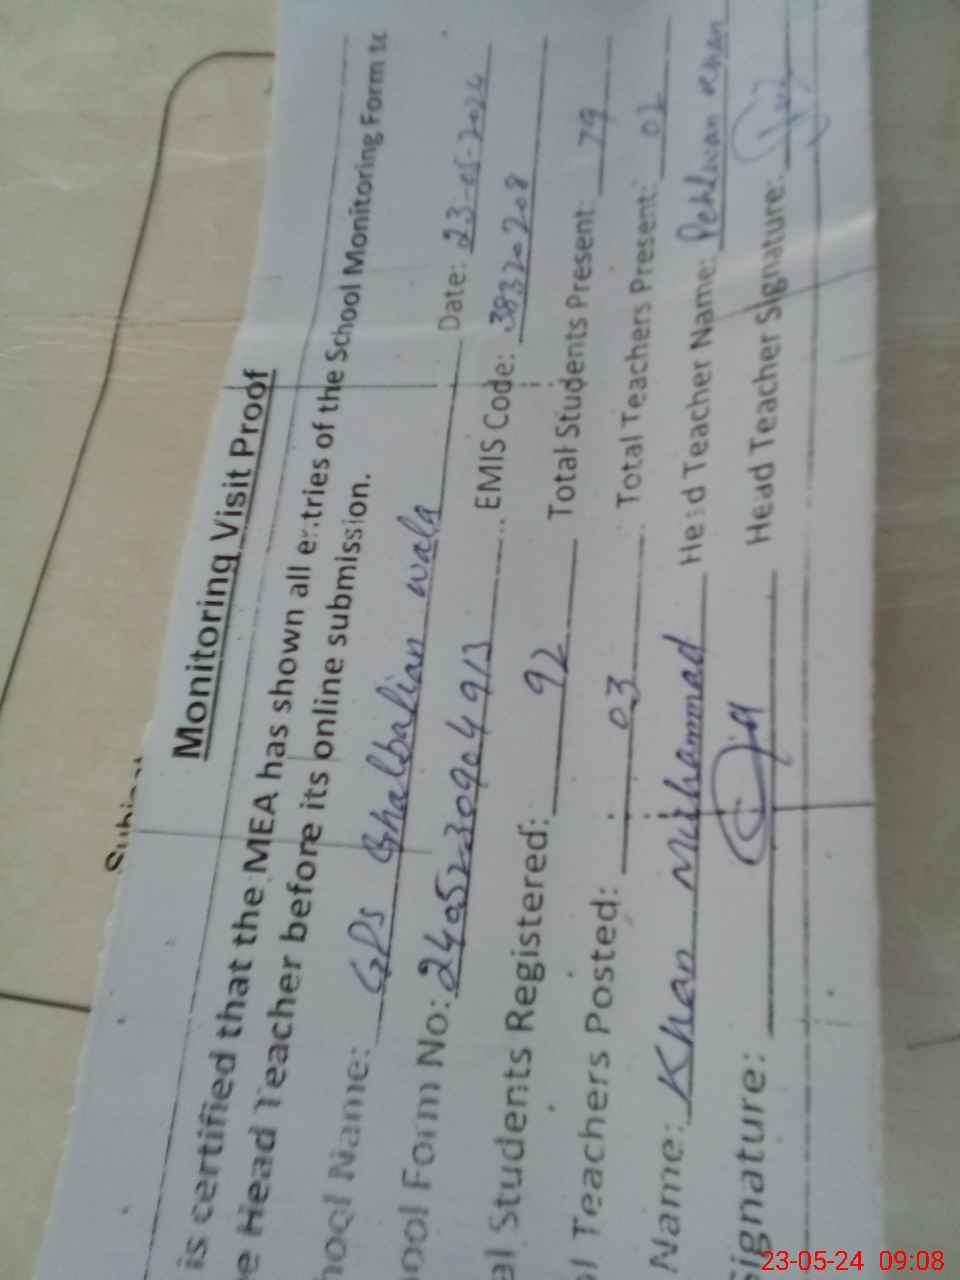 Monitoring Visit Proof
is certified that the MEA has shown all entries of the School Monitoring Form to
e Head Teacher before its online submission.
hool Name: GPS Bhalbalian wala Date: 23-05-2024
hool Form No: 2405230904913 EMIS Code: 38320208
al Students Registered: 92 Total Students Present: 79
l Teachers Posted: 03 Total Teachers Present: 02
Name: Khan Muhammad Head Teacher Name: Pehlwan Khan
Signature: Head Teacher Signature:
Subject
23-05-24 09:08